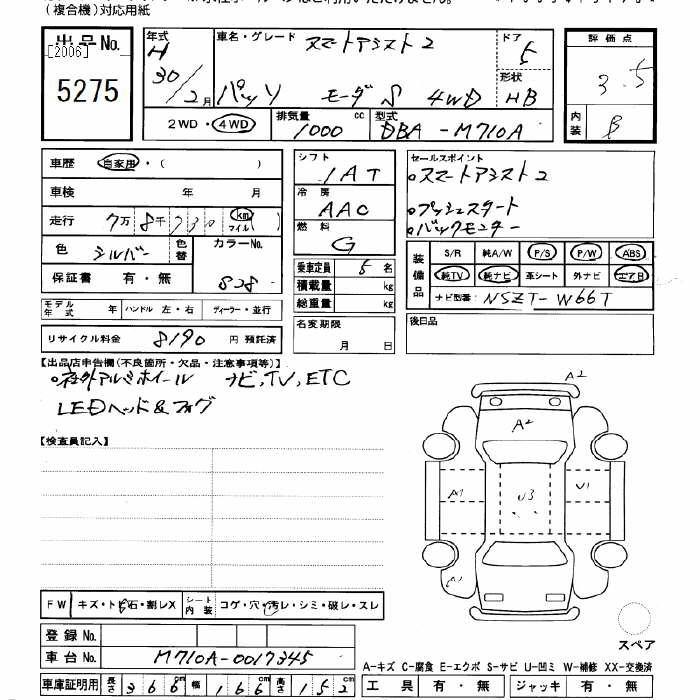 (複合機)対応用紙
出品No.
[2006]
5275
年式 H 30/2月
車名・グレード スマートアシスト2
パッソ モーダS 4WD
ドア 5
形状 HB
2WD・4WD
排気量 1000 cc
型式 DBA-M710A
評価点 3.5
内装 B
車歴 自家用・( )
車検 年 月
走行 7万8千730 km マイル ( )
色 シルバー 色替 カラーNo. S28
保証書 有・無
モデル年式 年 ハンドル 左・右 ディーラー・並行
リサイクル料金 8190 円 預託済
シフト IAT
冷房 AAC
燃料 G
乗車定員 5 名
積載量 kg
総重量 kg
名変期限 月 日
セールスポイント
スマートアシスト2
プッシュスタート
バックモニター
装備品 S/R 純A/W P/S P/W ABS
純TV 純ナビ 革シート 外ナビ エアB
ナビ型番 NSZT-W66T
後日品
【出品店申告欄(不良箇所・欠品・注意事項等)】
社外アルミホイール ナビ,TV,ETC
LEDヘッド&フォグ
【検査員記入】
A2
A2
A1 U3 U1
A1
スペア
FW キズ・トビ石・割レX シート内装 コゲ・穴・汚レ・シミ・破レ・スレ
登録No.
車台No. M710A-0017345
A-キズ C-腐食 E-エクボ S-サビ U-凹ミ W-補修 XX-交換済
車庫証明用 長さ 366cm 幅 166cm 高さ 152cm
工具 有・無 ジャッキ 有・無